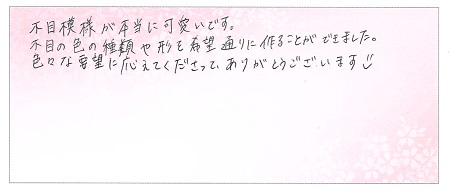 木目模様が本当に可愛いです。
木目の色の種類や形を希望通りに作ることができました。
色々な要望に応えてくださって、ありがとうございます☺